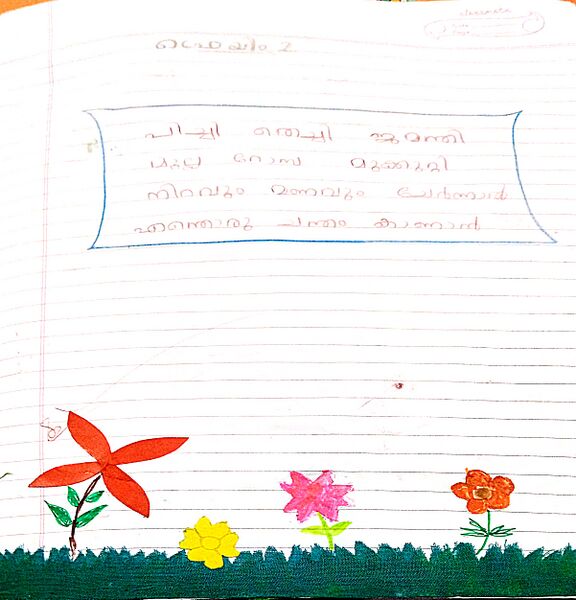 ഫ്രെയിം 2
പിച്ചി തെച്ചി ജമന്തി
മുല്ല റോസ മുക്കുറ്റി
നിറവും മണവും ചേർന്നാൽ
എന്തൊരു ചന്തം കാണാൻ